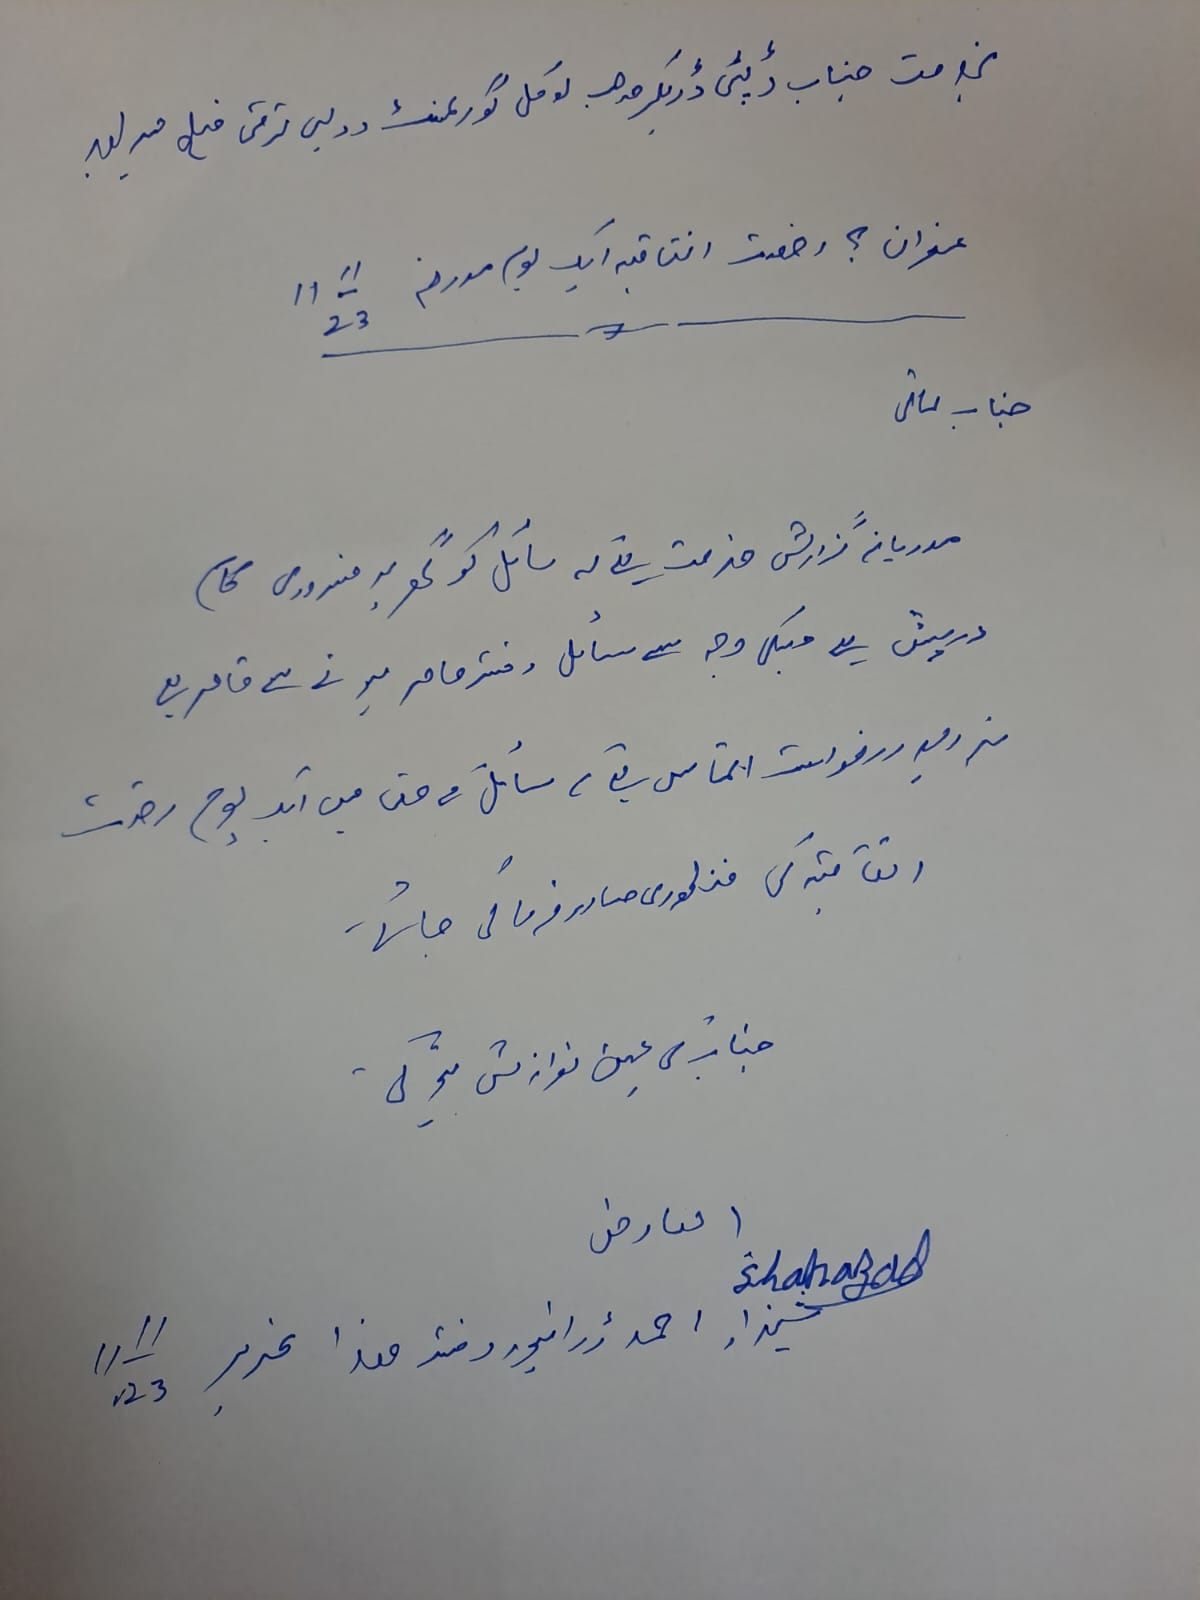 بخدمت جناب ڈپٹی ڈریکٹر صاحب لوکل گورنمنٹ و دیہی ترقی ضلع میرپور
عنوان ؛ رخصت اتفاقیہ ایک یوم مورخہ 11/11/23
جناب عالی
مودبانہ گزارش خدمت ہے کہ سائل کو گھر پر ضروری کام
درپیش ہے جسکی وجہ سے سائل دفتر حاضر ہونے سے قاصر ہے
بذریعہ درخواست التماس ہے کہ سائل کے حق میں ایک یوم رخصت
اتفاقیہ کی منظوری صادر فرمائی جائے۔
جناب کی عین نوازش ہو گی۔
العارض
Shahazad
شہزاد احمد ڈرائیور دفتر ھذا تحریر 11/11/23